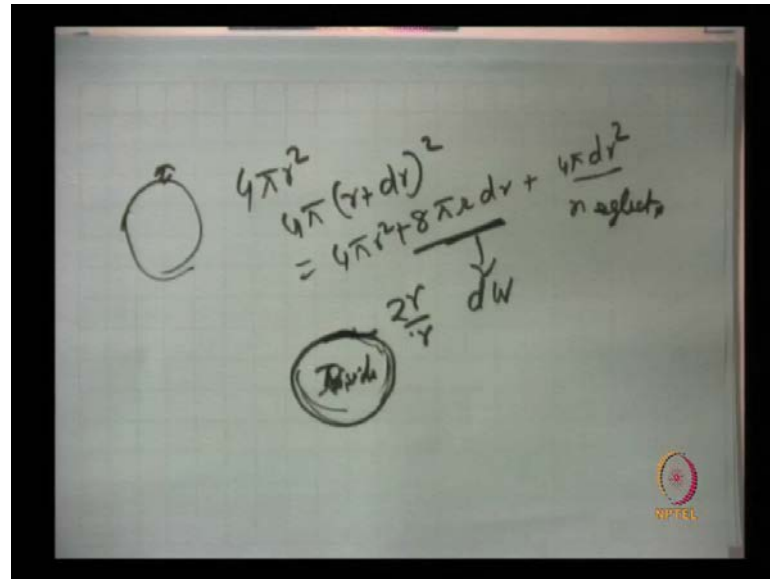 4πr²
4π(r+dr)²
= 4πr² + 8πr dr + 4πdr²
neglect
dW
2γ
r
NPTEL